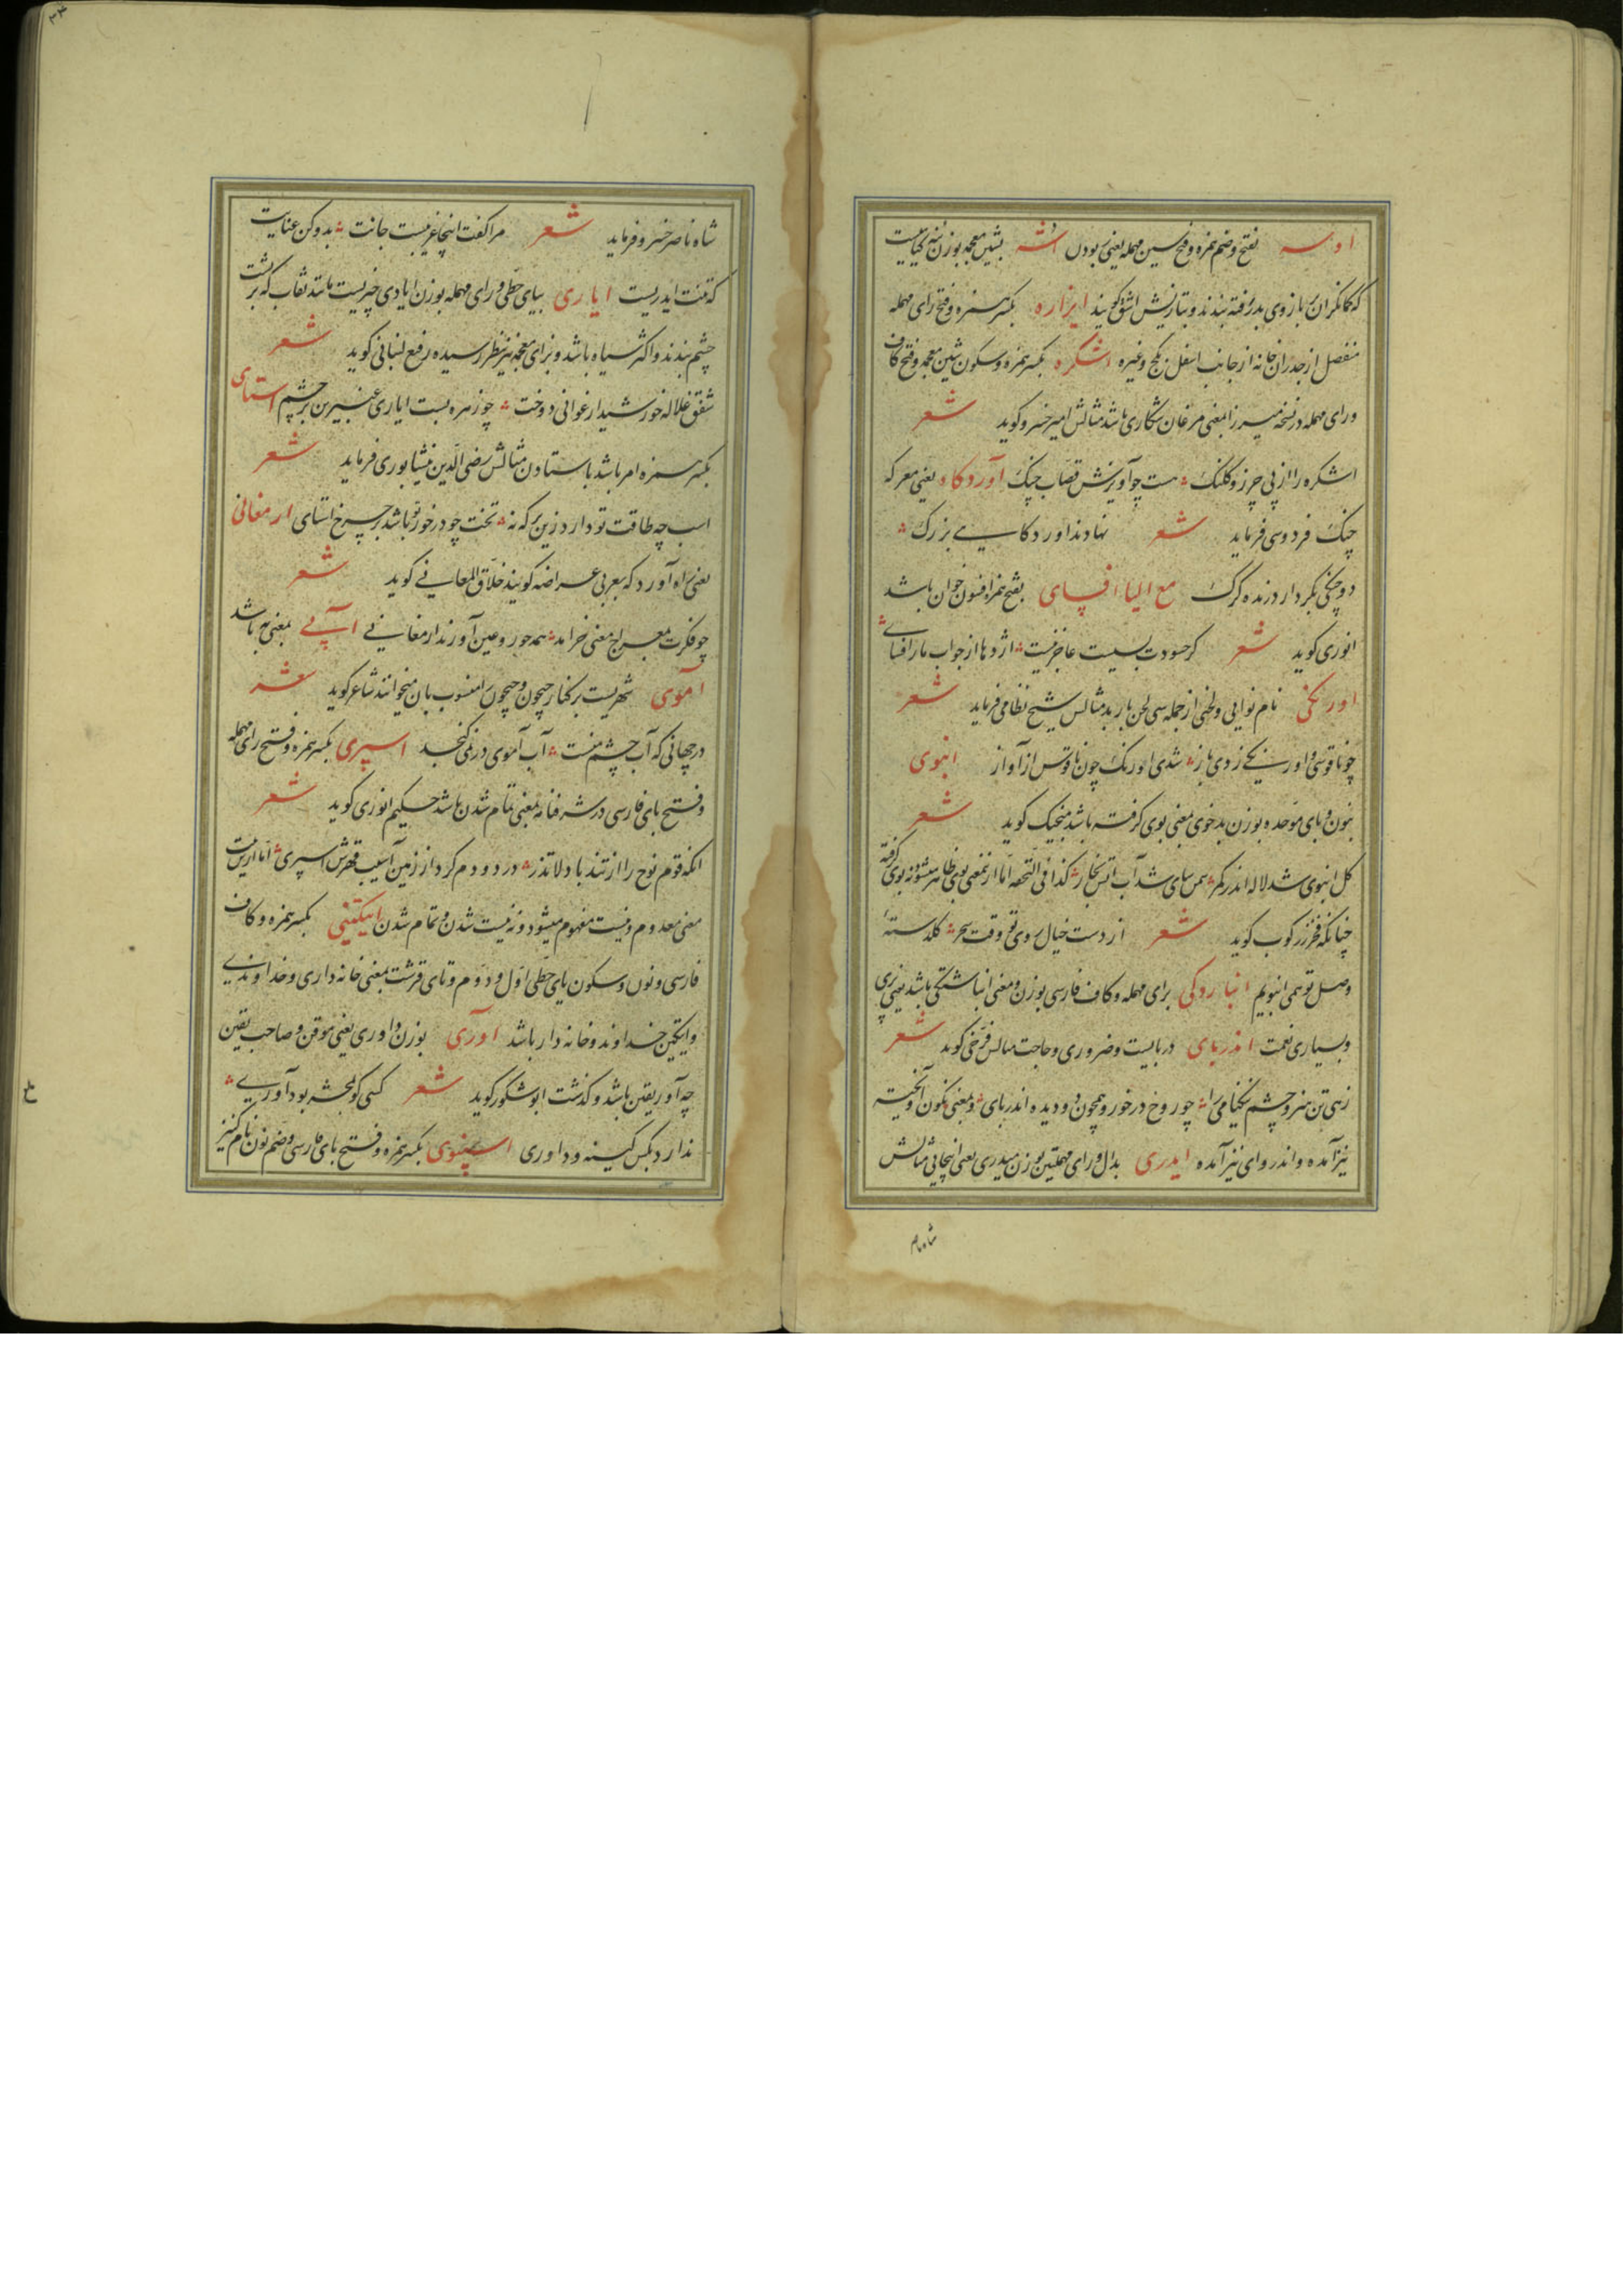 اوسه بفتح و ضم همزه و فتح سین مهمله یعنی ربودن اشه بشین معجمه بوزن بنه گیاهیست
که کمانگران بازوی بدررفته بندند و بتازیش اشق گویند ایزاره بکسر همزه و فتح رای مهمله
منفصل از جدران خانه از جانب اسفل زگچ و غیره اشکره بکسر همزه و سکون شین معجمه و فتح کاف
و رای مهمله در نسخه میرزا بمعنی مرغان شکاری باشد مثالش امیر خسرو گوید شعر
اشکره را از پی چرز و کلنک هست چو آویزش قصاب چنک آوردکاه یعنی معرکه
جنک فردوسی فرماید شعر نهادند اوردکاهی بزرک
دو جنکی بکردار درنده کرک مع الیا افسای بفتح همزه افسون خوان باشد
انوری گوید شعر کر حسودت بسیست عاجز نیست اژدها از جواب مار افسای
اورنکی نام نوایی و لحنی از جمله سی لحن باربد مثالش شیخ نظامی فرماید شعر
چو ناقوسی و اورنکی زدی باز شدی اورنک چون ناقوس از آواز انبوی
بنون و بای موحده بوزن بدخوی بمعنی بوی کرفته باشد منجیک گوید شعر
کل انبوی شد لاله اندر کمر سمن سای شد آب آتش بخار کذا فی التحفه اما از نمعنی بوی ظاهر میشود نه بوی کرفته
چنانکه فخر زرکوب گوید شعر از دست خیال روی تو وقت سحر کلدسته
وصل تو همی انبویم انباردکی برای مهمله و کاف فارسی بوزن و معنی انباشتکی باشد یعنی پری
و بسیاری نعمت اندربای دربایست و ضروری و حاجت مثالش فرخی گوید شعر
زهی تن هنر و چشم نیکنامی را چو روح درخور و همچون دو دیده اندربای و بمعنی نکون آویخته
نیز آمده و اندروای نیز آمده ایدری بدال و رای مهملتین بوزن حیدری یعنی اینجایی مثالش
شاه ناصر
شاه ناصر خسرو فرماید شعر مرا کفت اینجا غریبست جانت بدو کن عنایت
که تنت ایدریست ایاری بیای حطی و رای مهمله بوزن ایادی چیزیست مانند نقاب که بر پشت
چشم بندند و اکثر سیاه باشد و بزای معجمه نیز بنظر رسیده رفیع لنبانی گوید شعر
شفق غلاله خورشید ارغوانی دوخت چو زهره بست ایاری عنبرین بر چشم استای
بکسر همزه امر باشد باستادن مثالش رضی الدین نیشابوری فرماید شعر
اسب چه طاقت تو دارد زین برکه نه تخت چو درخور تو باشد بر چرخ استای ارمغانی
یعنی راه آورد که بعربی عراضه گویند خلاق المعانی گوید شعر
چو فکرت بمعراج معنی خرامد همه حور و عین آورند ارمغانی آبی بمعنی به باشد
آموی شهریست بر کنار جیحون و جیحون را منسوب بان میخوانند شاعر گوید شعر
در جهانی که آب چشم منست آب آموی در نمی کنجد اسپری بکسر همزه و فتح رای مهمله
و فتح بای فارسی در شرفنامه بمعنی تمام شدن باشد حکیم انوری گوید شعر
انکه قوم نوح را از تند باد لا تذر در دو دم کرد از زمین آسیب قهرش اسپری اما ازین بیت
معنی معدوم و نیست مفهوم میشود و نه نیست شدن و تمام شدن ایکتینی بکسر همزه و کاف
فارسی و نون و سکون یای حطی اول و دوم و تای قرشت بمعنی خانه داری و خداوندی
و ایکتین خداوند و خانه دار باشد آوری بوزن داوری یعنی موقن و صاحب یقین
چه آور یقین باشد و کذشت ابوشکور گوید شعر کسی کو بمحشر بود آوری
ندارد بکس کینه و داوری اسپنوی بکسر همزه و فتح بای فارسی و ضم نون نام کنیز